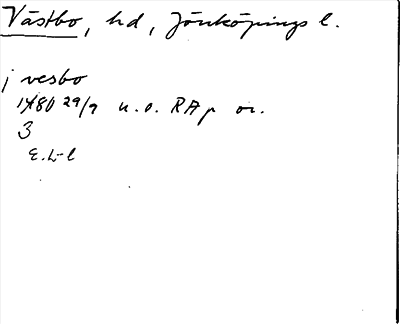 Västbo, hd, Jönköpings l.
j vesbo
1480 29/9 u.o. RAp or.
3
E.L-l